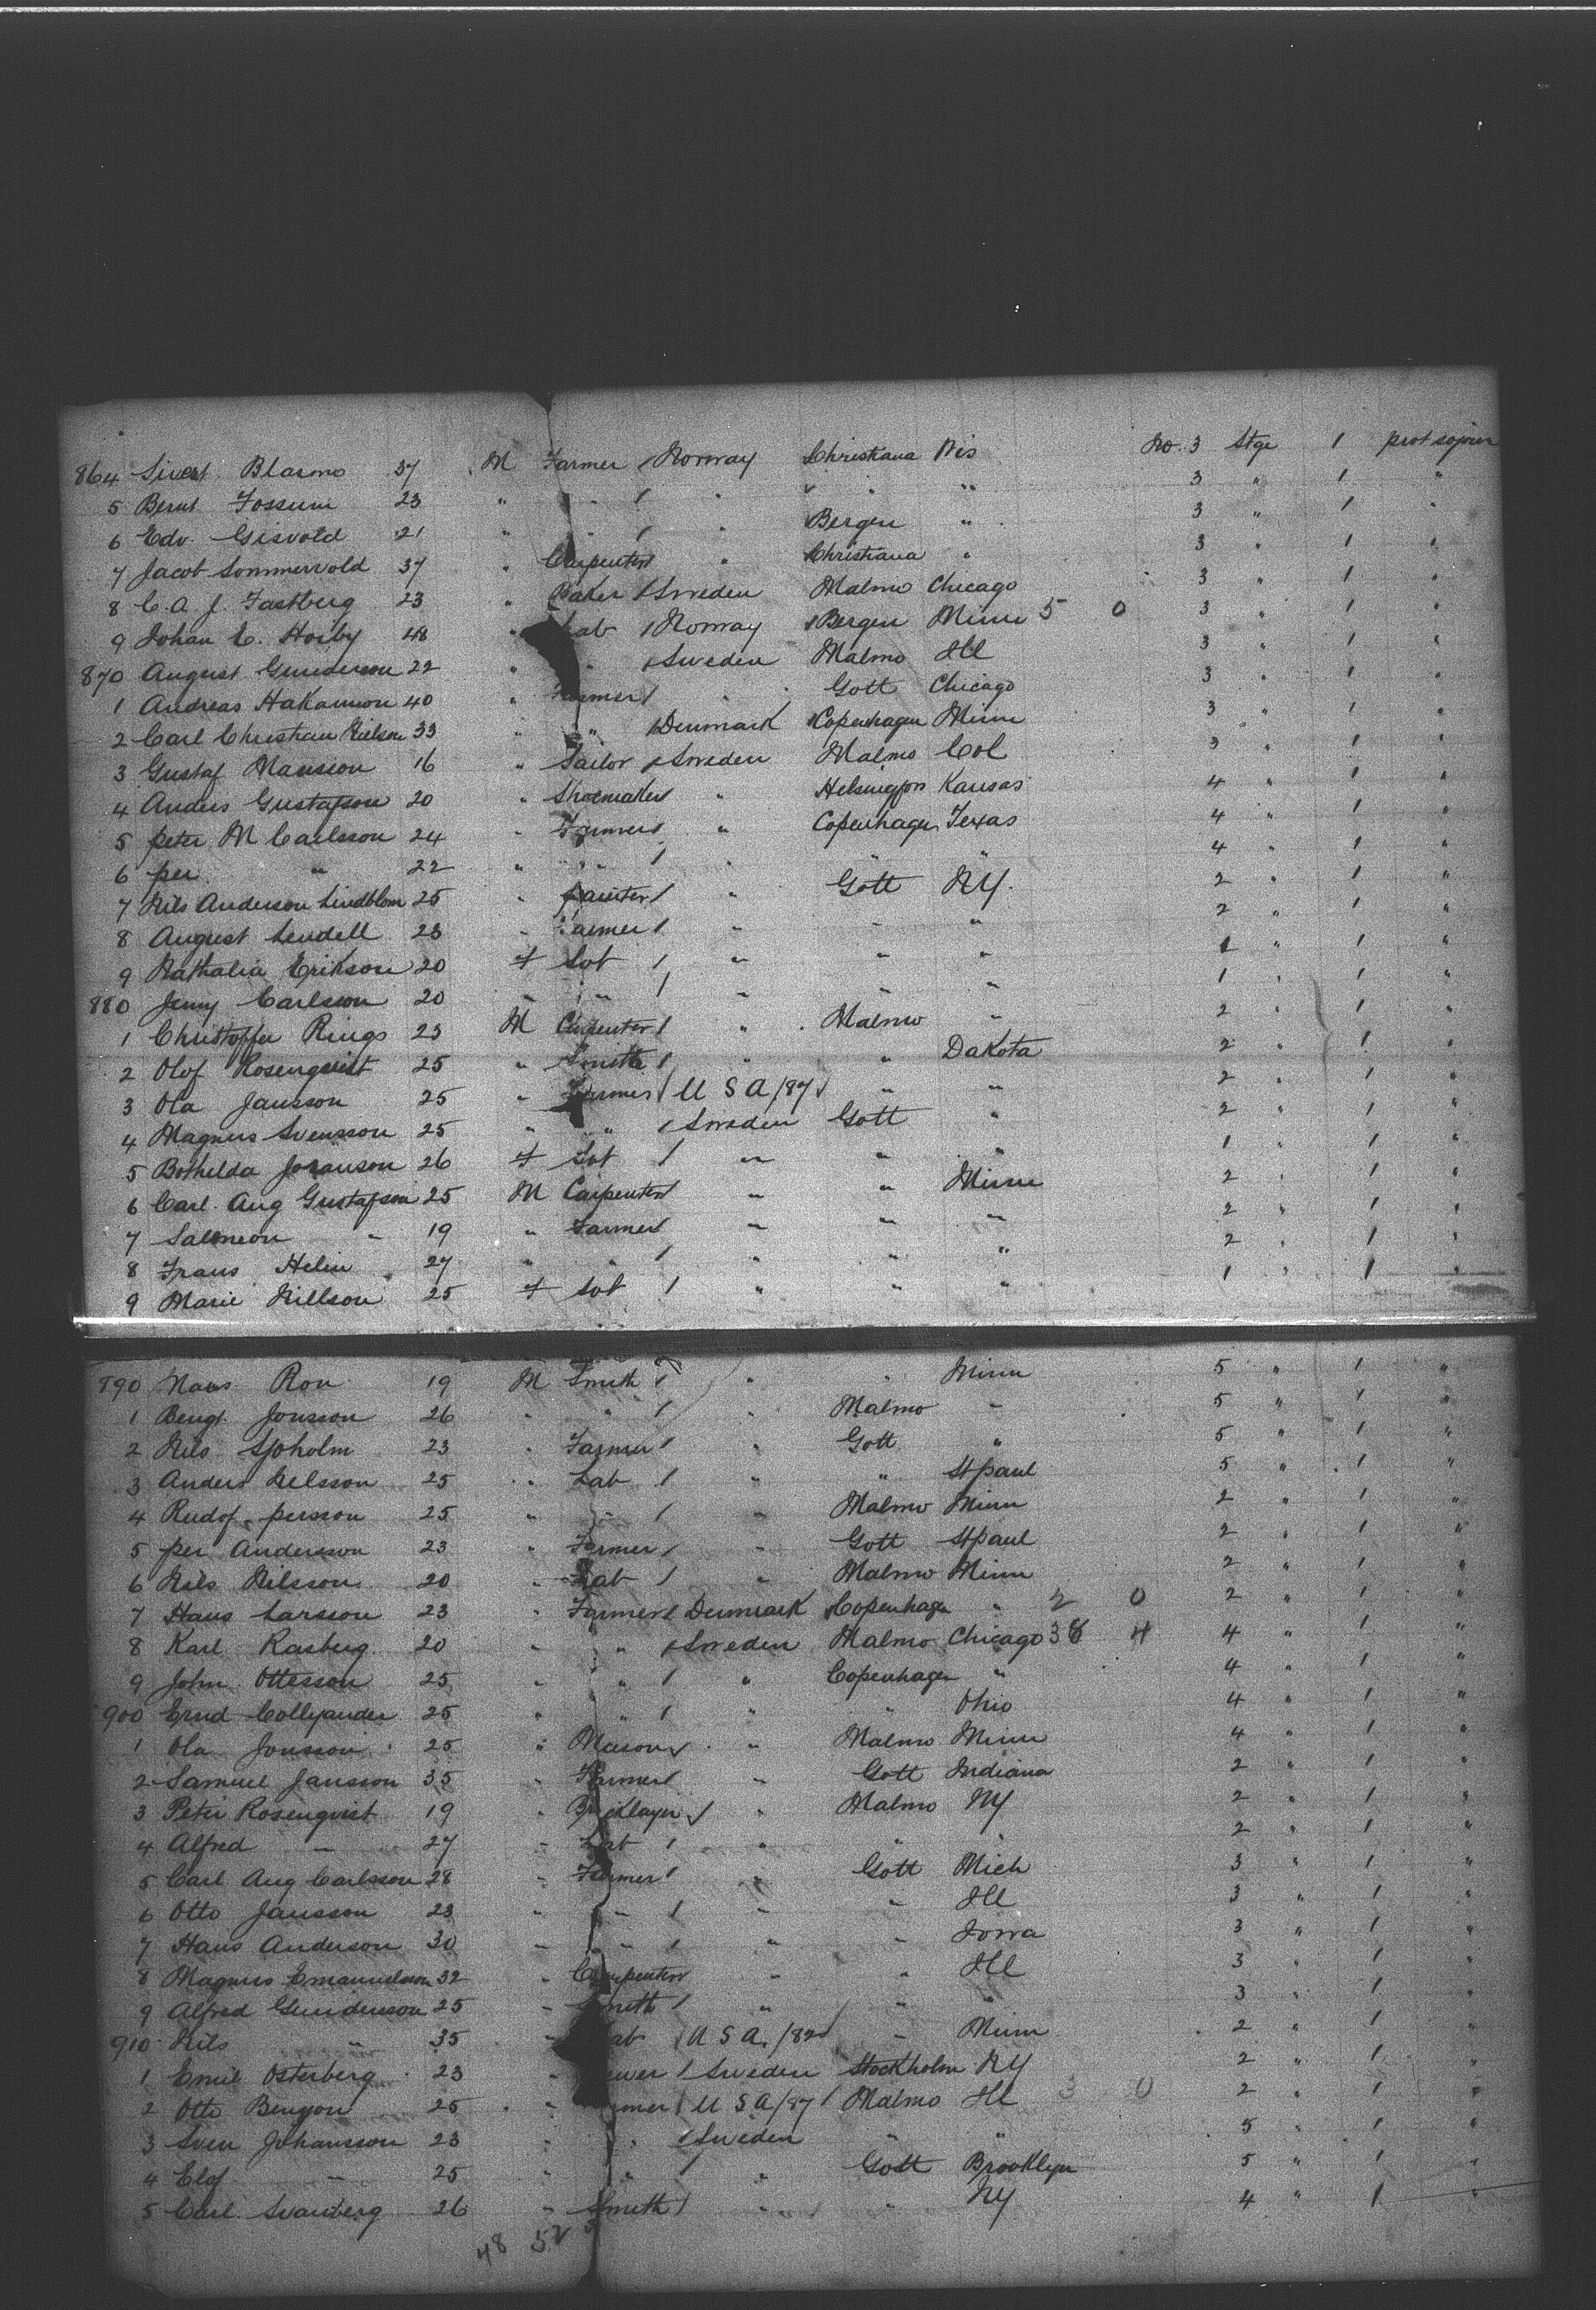 864 Sivert Blasmo 37 M Farmer / Norway Christiana Wis No. 3 Stge 1 prot sojourn
5 Bernt Fossum 23 " " / " " " " 3 " 1 "
6 Edv. Gisvold 21 " " / " Bergen " 3 " 1 "
7 Jacob Sommervold 37 " Carpenter / " Christiana " 3 " 1 "
8 C. A. J. Fastberg 23 " Baker / Sweden Malmo Chicago 3 " 1 "
9 Johan E. Hoiby 48 " Lab / Norway Bergen Minn 5 0 3 " 1 "
870 August Gunderson 22 " " / Sweden Malmo Ill 3 " 1 "
1 Andreas Hakanson 40 " Farmer / " Gott Chicago 3 " 1 "
2 Carl Christian Nielson 33 " " / Denmark Copenhagen Minn 3 " 1 "
3 Gustaf Mansson 16 " Sailor / Sweden Malmo Col 3 " 1 "
4 Anders Gustafson 20 " Shoemaker / " Helsingfors Kansas 4 " 1 "
5 peter M Carlsson 24 " Farmer / " Copenhagen Texas 4 " 1 "
6 per " 22 " " / " " " 4 " 1 "
7 Nils Anderson Lindblom 25 " painter / " Gott NY. 2 " 1 "
8 August Lendell 23 " Farmer / " " " 2 " 1 "
9 Nathalia Erikson 20 F Svt / " " " 1 " 1 "
880 Jenny Carlsson 20 " " / " " " 1 " 1 "
1 Christoffer Rings 23 M Carpenter / " Malmo " 2 " 1 "
2 Olof Rosenqvist 25 " Smith / " " Dakota 2 " 1 "
3 Ola Jansson 25 " Farmer / U S A /87 / " " 2 " 1 "
4 Magnus Svensson 25 " " / Sweden Gott " 2 " 1 "
5 Bothelda Joranson 26 F Svt / " " " 1 " 1 "
6 Carl Aug Gustafson 25 M Carpenter / " " Minn 2 " 1 "
7 Salomeon " 19 " Farmer / " " " 2 " 1 "
8 Frans Helin 27 " " / " " " 2 " 1 "
9 Marie Nillson 25 F Svt / " " " 1 " 1 "
890 Hans Ron 19 M Smith / " " Minn 5 " 1 "
1 Bengt Jonsson 26 " " / " Malmo " 5 " 1 "
2 Nils Sjoholm 23 " Farmer / " Gott " 5 " 1 "
3 Anders Nelsson 25 " Lab / " " St paul 5 " 1 "
4 Rudof persson 25 " " / " Malmo Minn 2 " 1 "
5 per Andersson 23 " Farmer / " Gott St paul 2 " 1 "
6 Nils Nilsson 20 " Lab / " Malmo Minn 2 " 1 "
7 Hans Larsson 23 " Farmer / Denmark Copenhagen " 2 0 2 " 1 "
8 Karl Rasberg 20 " " / Sweden Malmo Chicago 38 4 4 " 1 "
9 John Ottesson 25 " " / " Copenhagen " 4 " 1 "
900 Ernd Collyander 25 " " / " " Ohio 4 " 1 "
1 Ola Jonsson 25 " Mason / " Malmo Minn 4 " 1 "
2 Samuel Jansson 35 " Farmer / " Gott Indiana 2 " 1 "
3 Peter Rosenqvist 19 " Bricklayer / " Malmo NY 2 " 1 "
4 Alfred " 27 " Lab / " " " 2 " 1 "
5 Carl Aug Carlsson 28 " Farmer / " Gott Mich 3 " 1 "
6 Otto Jansson 23 " " / " " Ill 3 " 1 "
7 Hans Anderson 30 " " / " " Iowa 3 " 1 "
8 Magnus Emanuelsson 32 " Carpenter " " Ill 3 " 1 "
9 Alfred Gunderson 25 " Smith / " " " 3 " 1 "
910 Nils " 35 " Lab / U S A. /82 / " Minn 2 " 1 "
1 Emil Osterberg 23 " / Sweden Stockholm NY 2 " 1 "
2 Otto Bengon 25 " Farmer / U S A /87 / Malmo Ill 3 0 2 " 1 "
3 Sven Johansson 23 " " / Sweden " " 5 " 1 "
4 Elof " 25 " " / " Gott Brooklyn 5 " 1 "
5 Carl Svanberg 26 " Smith / " " NY 4 " 1 "
48 52